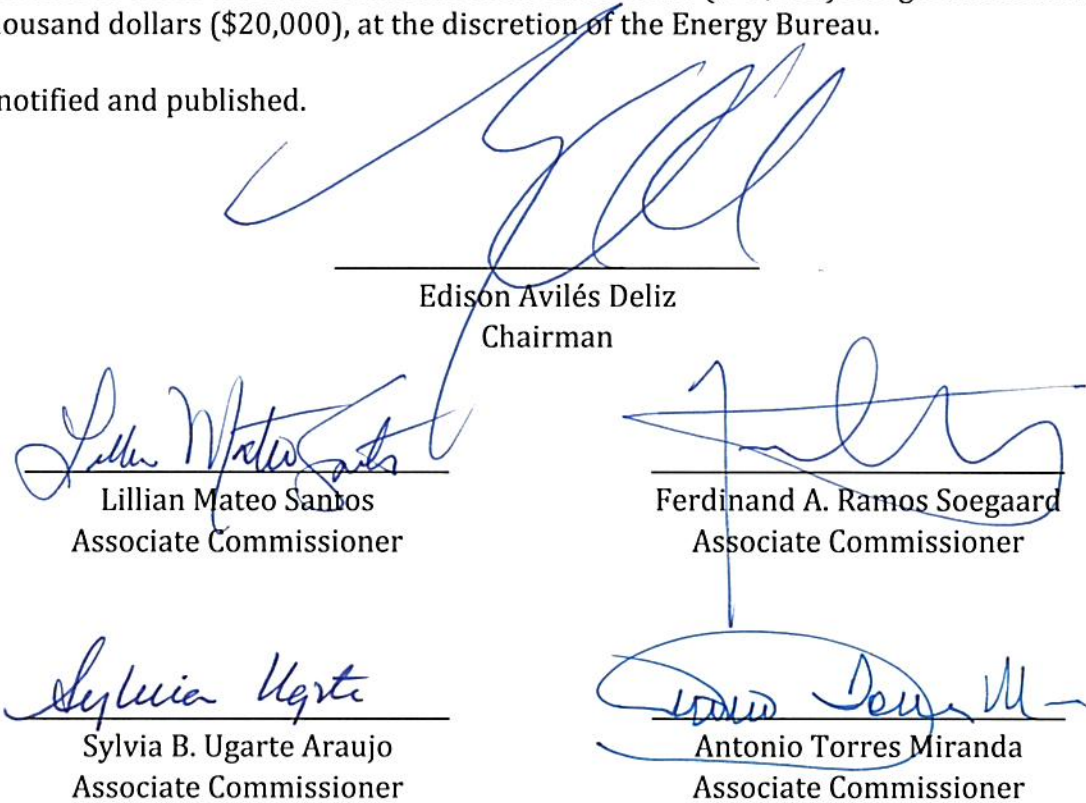 thousand dollars ($20,000), at the discretion of the Energy Bureau.
notified and published.
Edison Avilés Deliz
Chairman
Lillian Mateo Santos
Lillian Mateo Santos
Associate Commissioner
Ferdinand A. Ramos Soegaard
Associate Commissioner
Sylvia Ugarte
Sylvia B. Ugarte Araujo
Associate Commissioner
Antonio Torres Miranda
Associate Commissioner